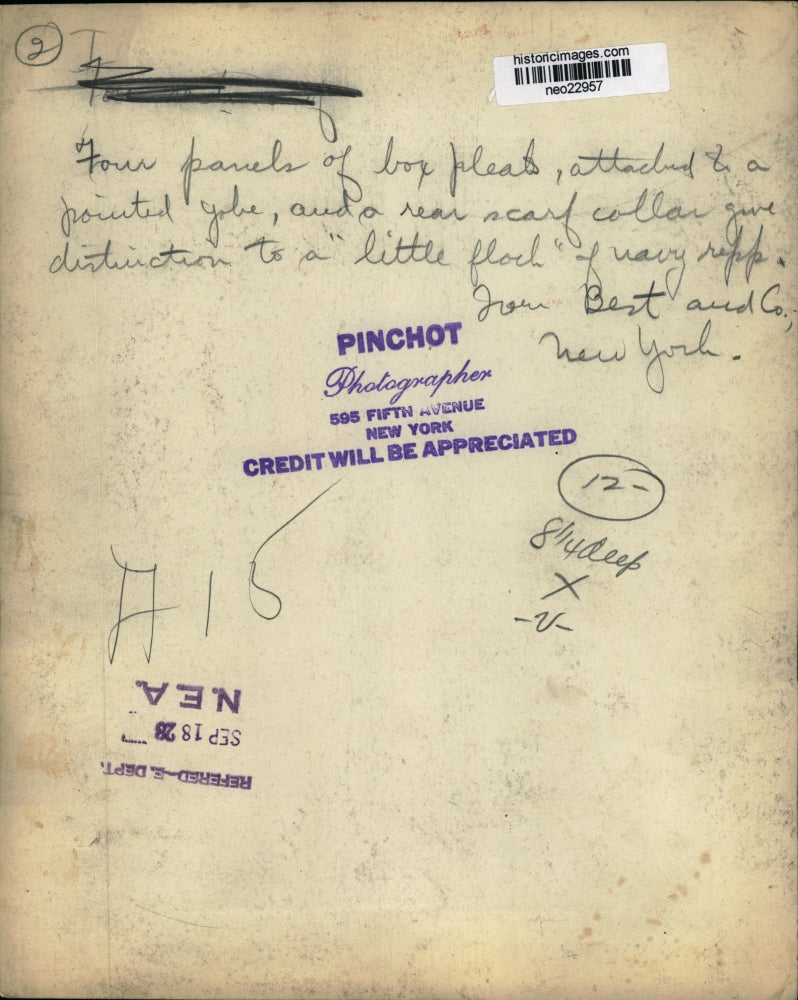 2
historicimages.com
neo22957
Four panels of box pleats, attached to a
pointed yoke, and a rear scarf collar give
distinction to a "little flock" of navy repp.
From Best and Co.,
New York.
PINCHOT
Photographer
595 FIFTH AVENUE
NEW YORK
CREDIT WILL BE APPRECIATED
12-
8 1/4 deep
X
-V-
N.E.A.
SEP 18 28
REFERED-E. DEPT.